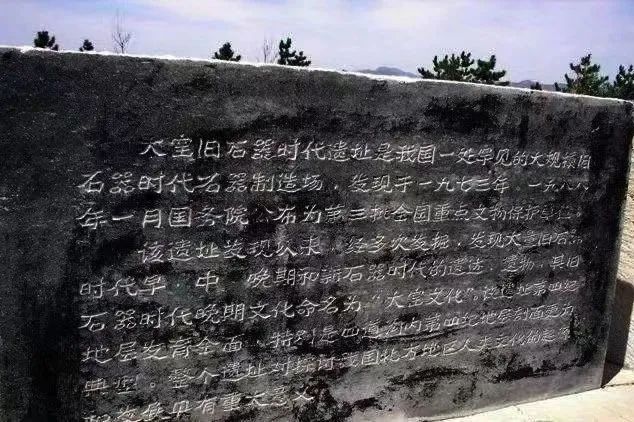 大窑旧石器时代遗址是我国一处罕见的大规模旧
石器时代石器制造场，发现于一九七三年，一九八八
年一月国务院公布为第三批全国重点文物保护单位。
该遗址发现以来，经多次发掘，发现大窑旧石器
时代早 中 晚期和新石器时代的遗迹、遗物，其旧
石器时代晚期文化命名为“大窑文化”。该遗址第四纪
地层发育全面，特别是四道沟内第四纪地层剖面更为
典型。整个遗址对探讨我国北方地区人类文化的起源
和发展具有重大意义